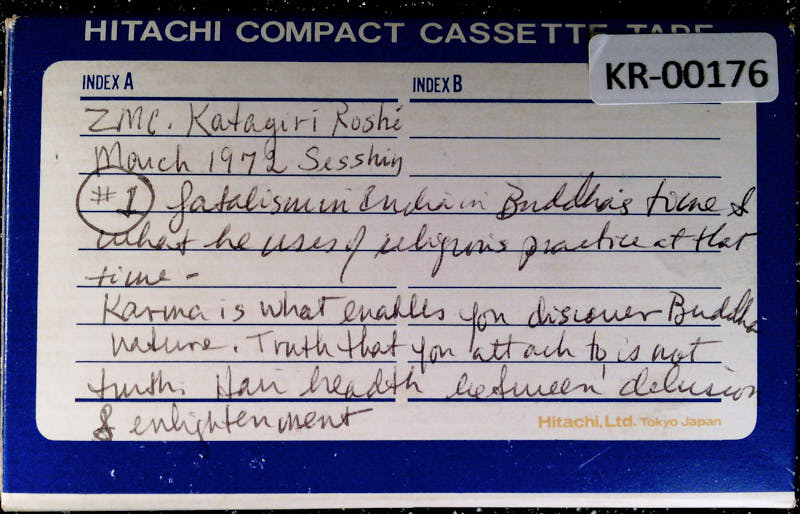 HITACHI COMPACT CASSETTE TAPE
KR-00176
INDEX A
INDEX B
ZMC. Katagiri Roshi
March 1972 Sesshin
#1 fatalism in India in Buddha's time &
what he uses of religious practice at that
time -
Karma is what enables you discover Buddha
nature. Truth that you attach to is not
truth. Hair breadth between delusion
& enlightenment
Hitachi, Ltd. Tokyo Japan